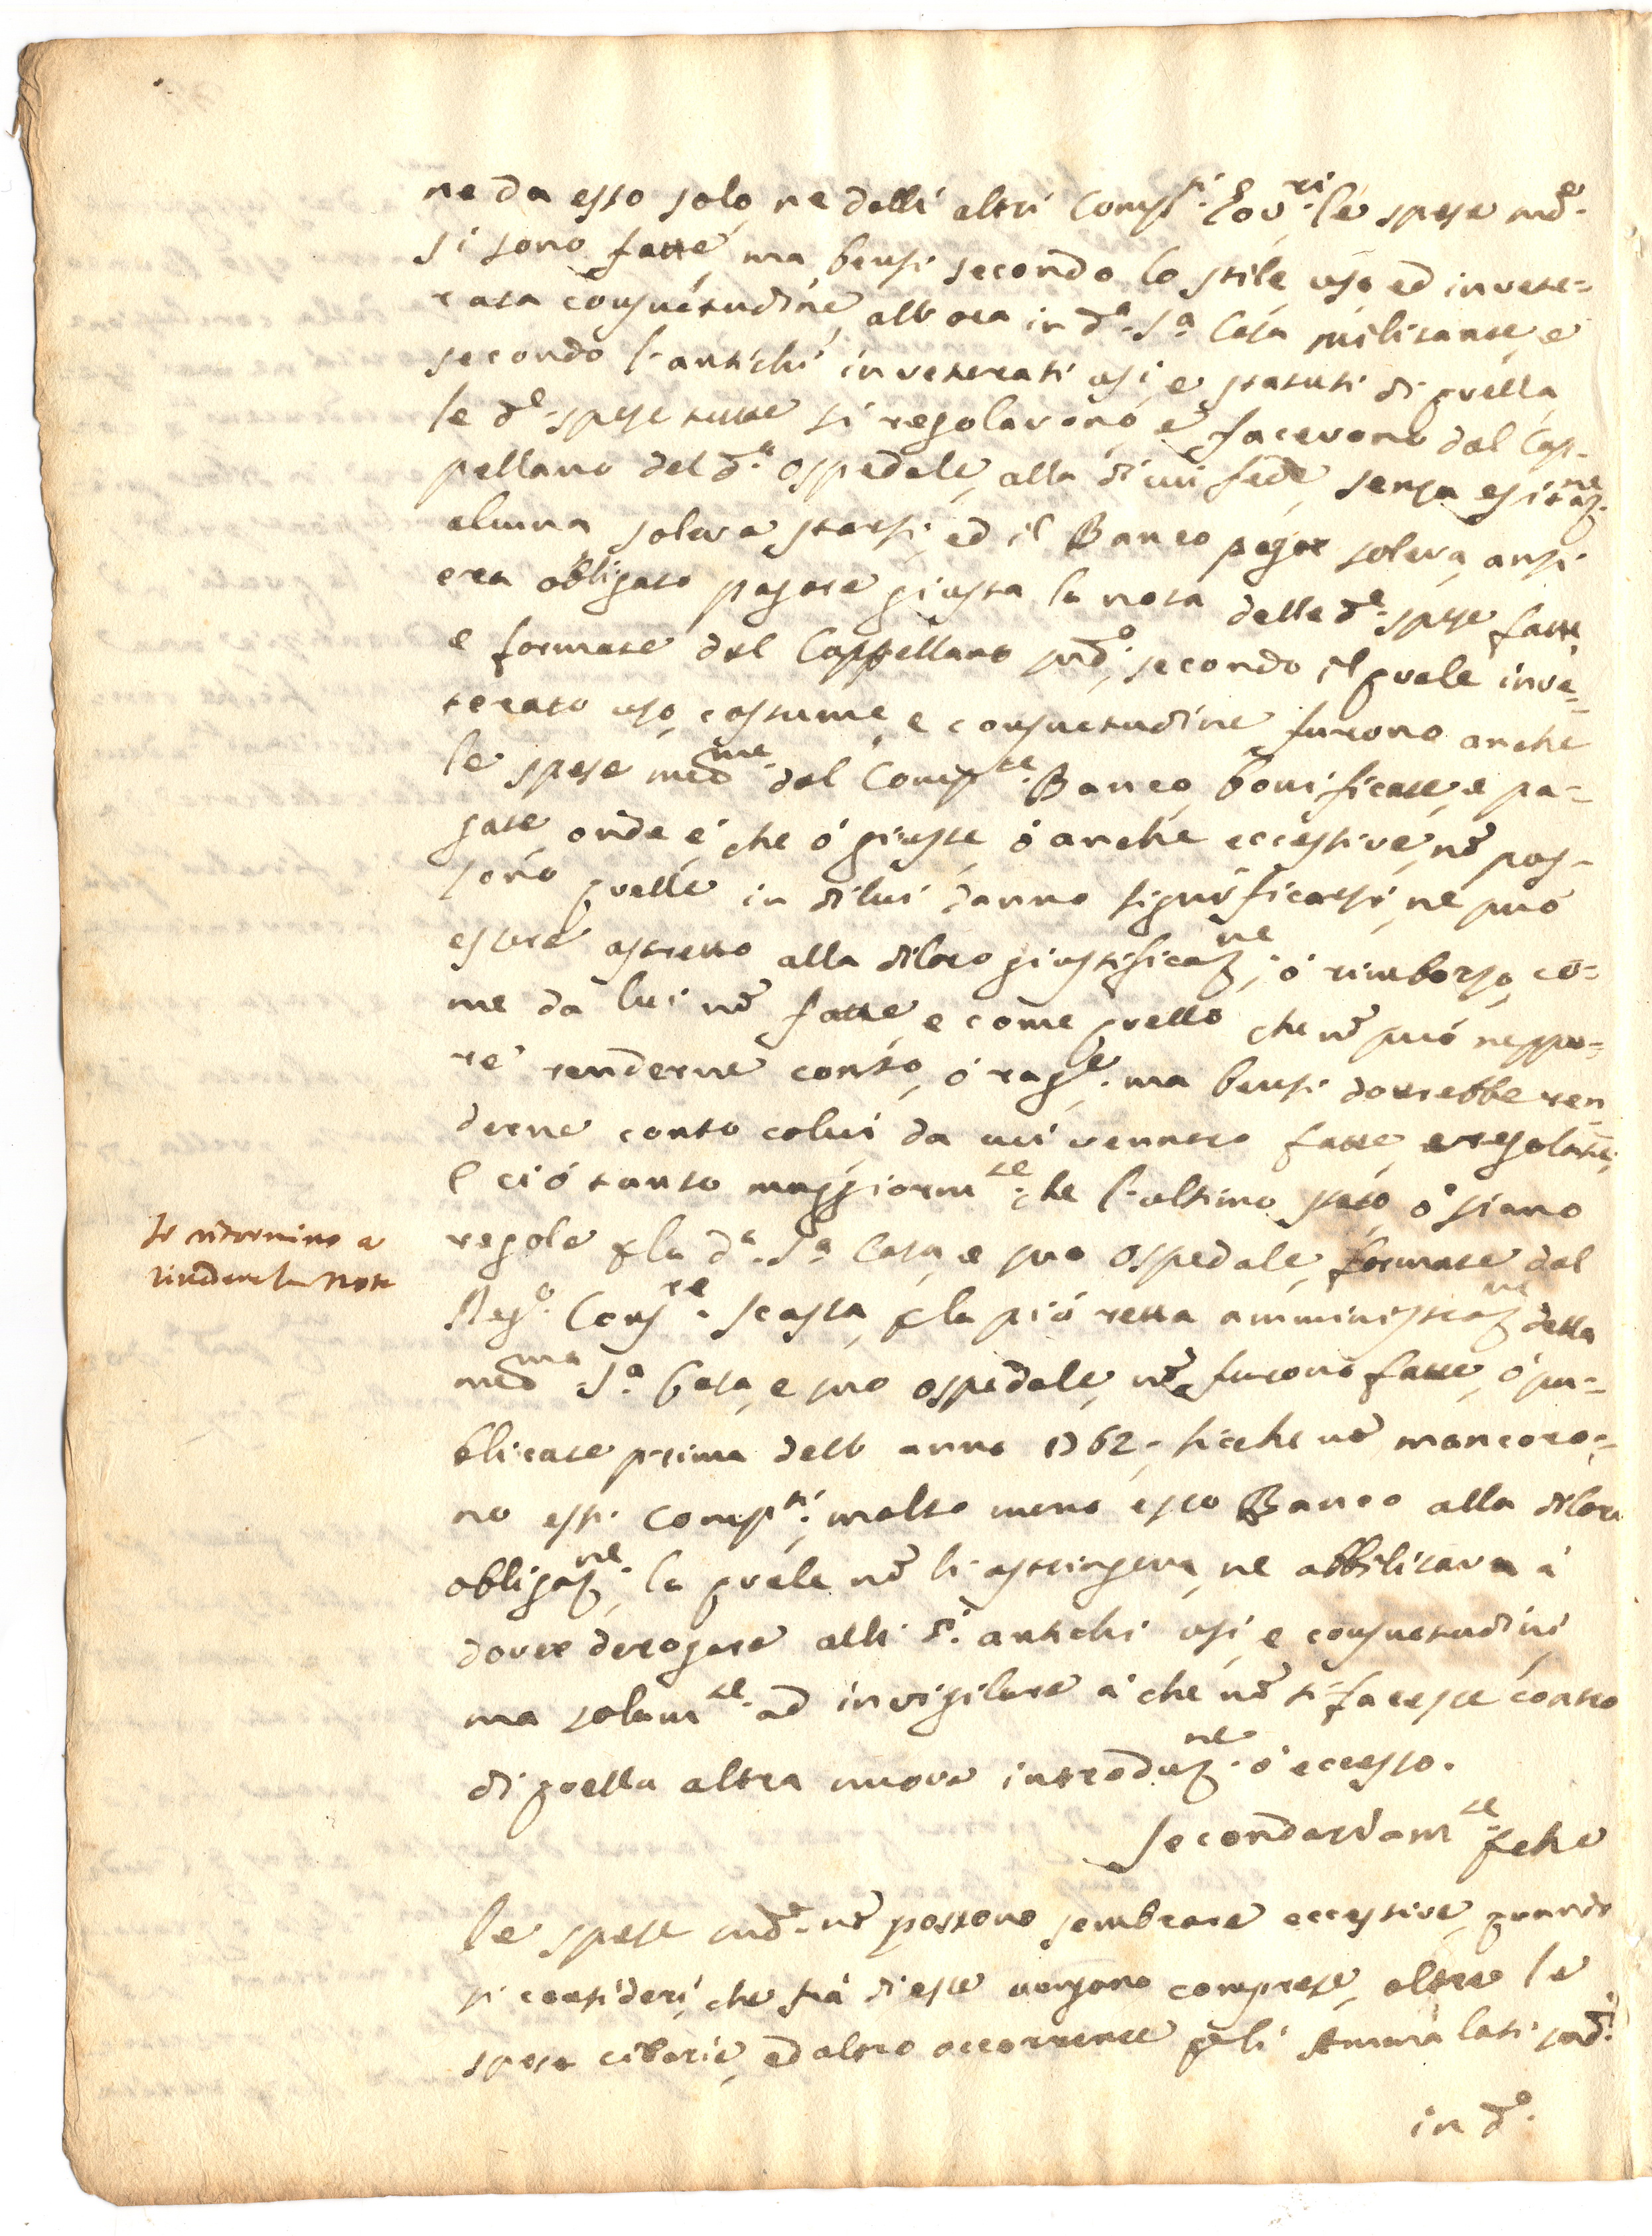 ne da esso solo, ne dalli altri Comp.ti Gov.ri le spese md.e
si sono fatte, ma bensi secondo lo stile, uso ed invete=
rata consuetudine allora in d.a S.a Casa militante, e
secondo l'antichi inveterati usi, e statuti di quella
le d.e spese tutte si regolavono, e facevono dal Cap-
pellano del d.o Ospedale, alla di cui fede, senza esitaz.ne
alcuna soleva starsi, ed il Banco pagar soleva, anzi
era obbligato pagare giusta la nota delle d.e spese fatte,
e formate dal Cappellano pnd.o; secondo il quale inve=
terato uso, costume, e consuetudine furono anche
le spese med.me dal Comp.te Banco bonificate, e pa=
gate, onde è che ò giuste, ò anche eccessive, nõ pos-
sono quelle in di lui danno significarsi, ne può
essere astretto alla di loro giustificaz.ne, ò rimborso, co=
me da lui nõ fatte, e come quello che nõ può neppu=
re renderne conto, ò rag.e, ma bensi dovrebbe ren
derne conto colui, da cui vennero fatte, e regolate;
E ciò tanto maggiorm.te che l'ultimo stato, ò siano
regole p la d.a S.a Casa, e suo Ospedale, formate dal
Reg.o Cons.re Scassa, p la più retta amministraz.ne della
med.ma S.a Casa, e suo ospedale, nõ furono fatte, ò pu=
blicate prima dell'anno 1762, sicche nõ mancoro=
no essi Comp.ti, molto meno esso Banco alla di loro
obligaz.ne, la quale nõ li astringeva, ne abbilitava à
dover derogare alli d.i antichi usi, e consuetudini,
ma solam.te ad invigilare à che nõ si facesse contro
di quella altra nuova introduz.ne ò eccesso.
Secondariam.te pche
le spese md.e nõ possono sembrare eccessive, quando
si consideri, che frà di esse vengono comprese, oltre le
spese cibarie, ed altro occorrente p li Ammalati pnd.i
in d.o
ritornino a